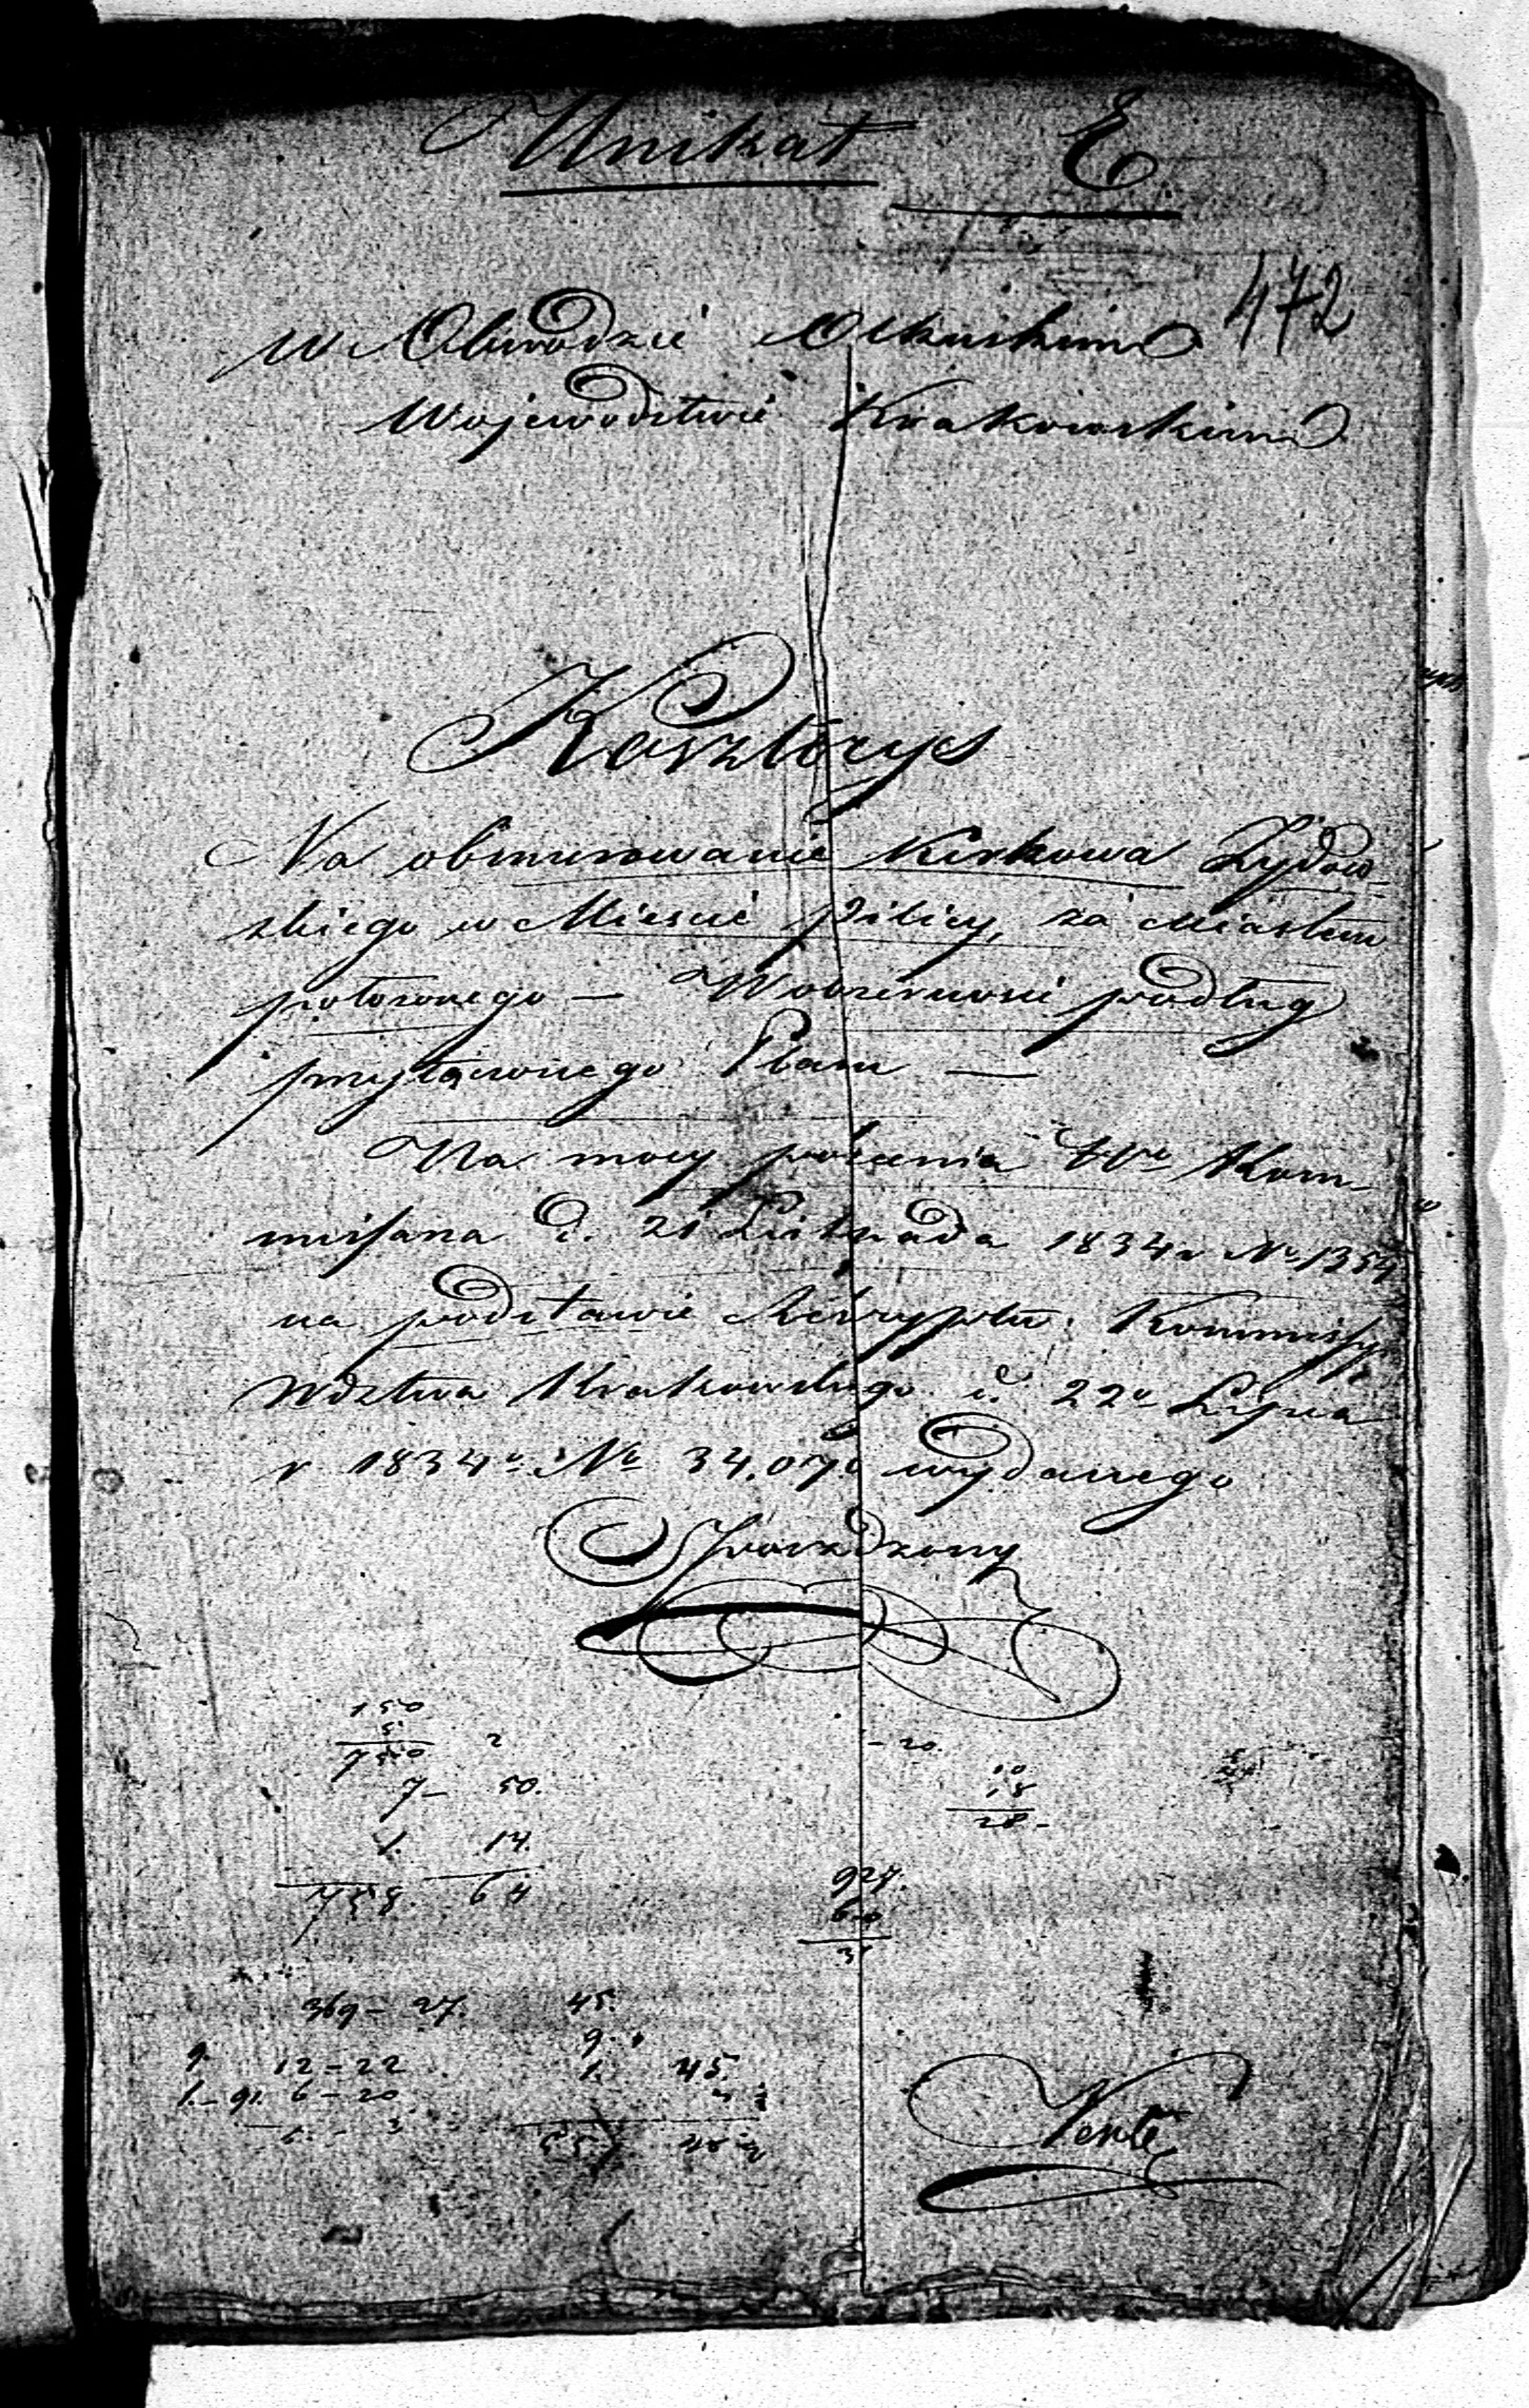 Unikat E.
472
w Obwodzie Olkuskim
Wojewodztwie Krakowskim
Kosztorys
Na obmurowanie Kirkowa Żydow-
skiego w Miescie Pilicy, za Miastem
położonego — W obszerności podług
przyłączonego Planu —
Na mocy polecenia Wo Kom-
missarza d. 21 Listopada 1834 r No 1354
na podstawie Reskryptu Kommissyi
Wdztwa Krakowskiego d. 22o Lipca
r 1834o No 34,070 wydanego
Sporządzony
150
5
750 2
7— 50.
1. 14.
758. 64
— 20.
10
18
28 —
927.
369 — 27.
45.
9.
12 — 22
1. 45.
6 — 20
Verte